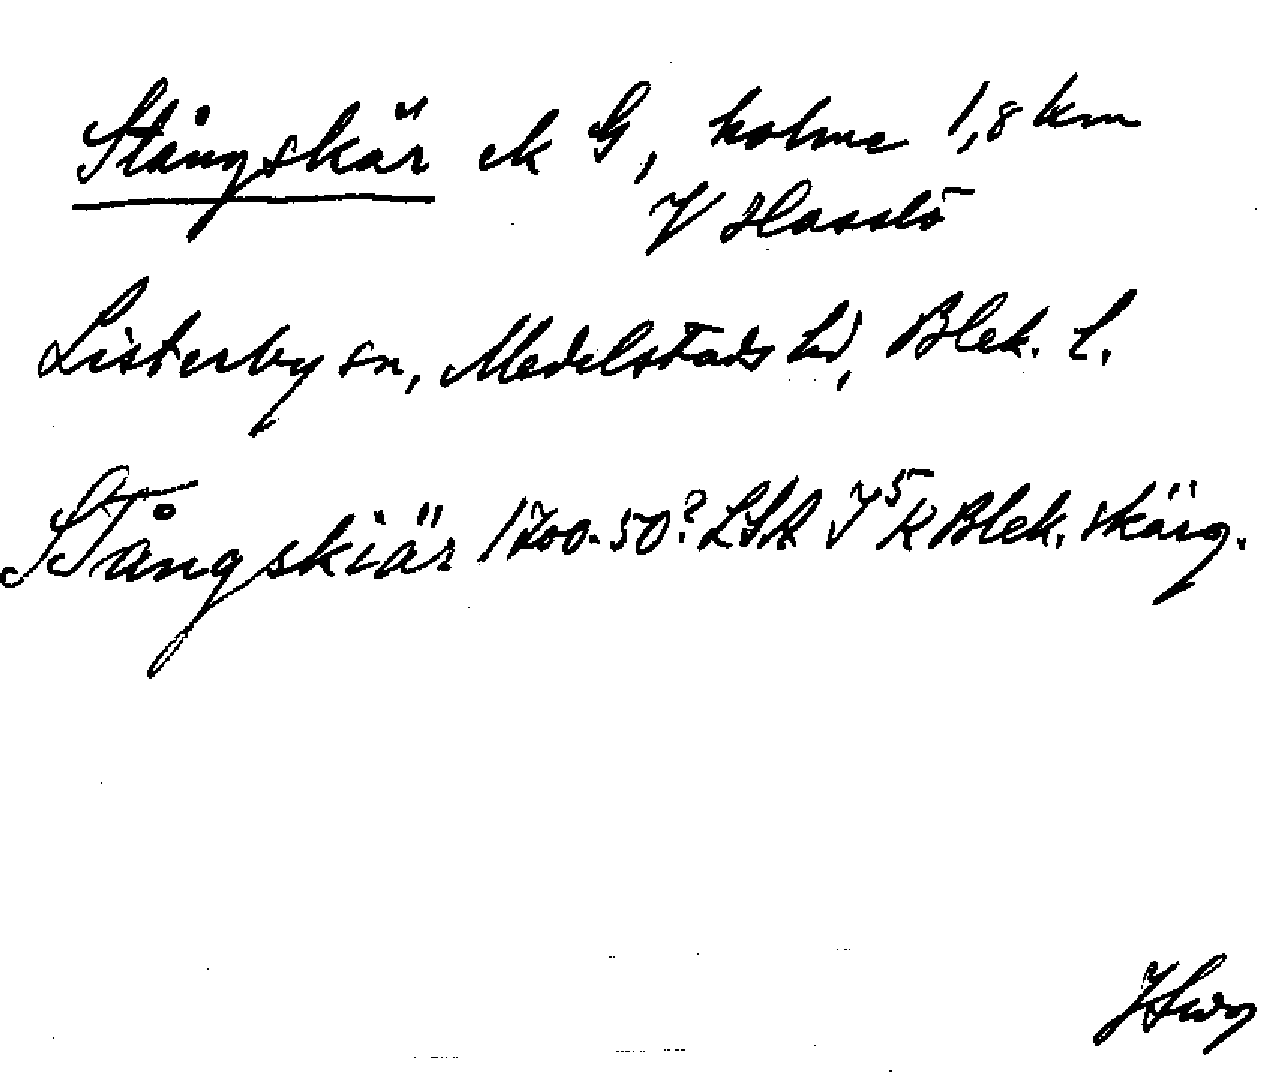 Stångskär ek G, holme 1,8 km
V Hasslö
Listerby sn, Medelstads hd, Blek. l.
Stångskiär 1700-50? LSA I⁵K Blek. skärg.